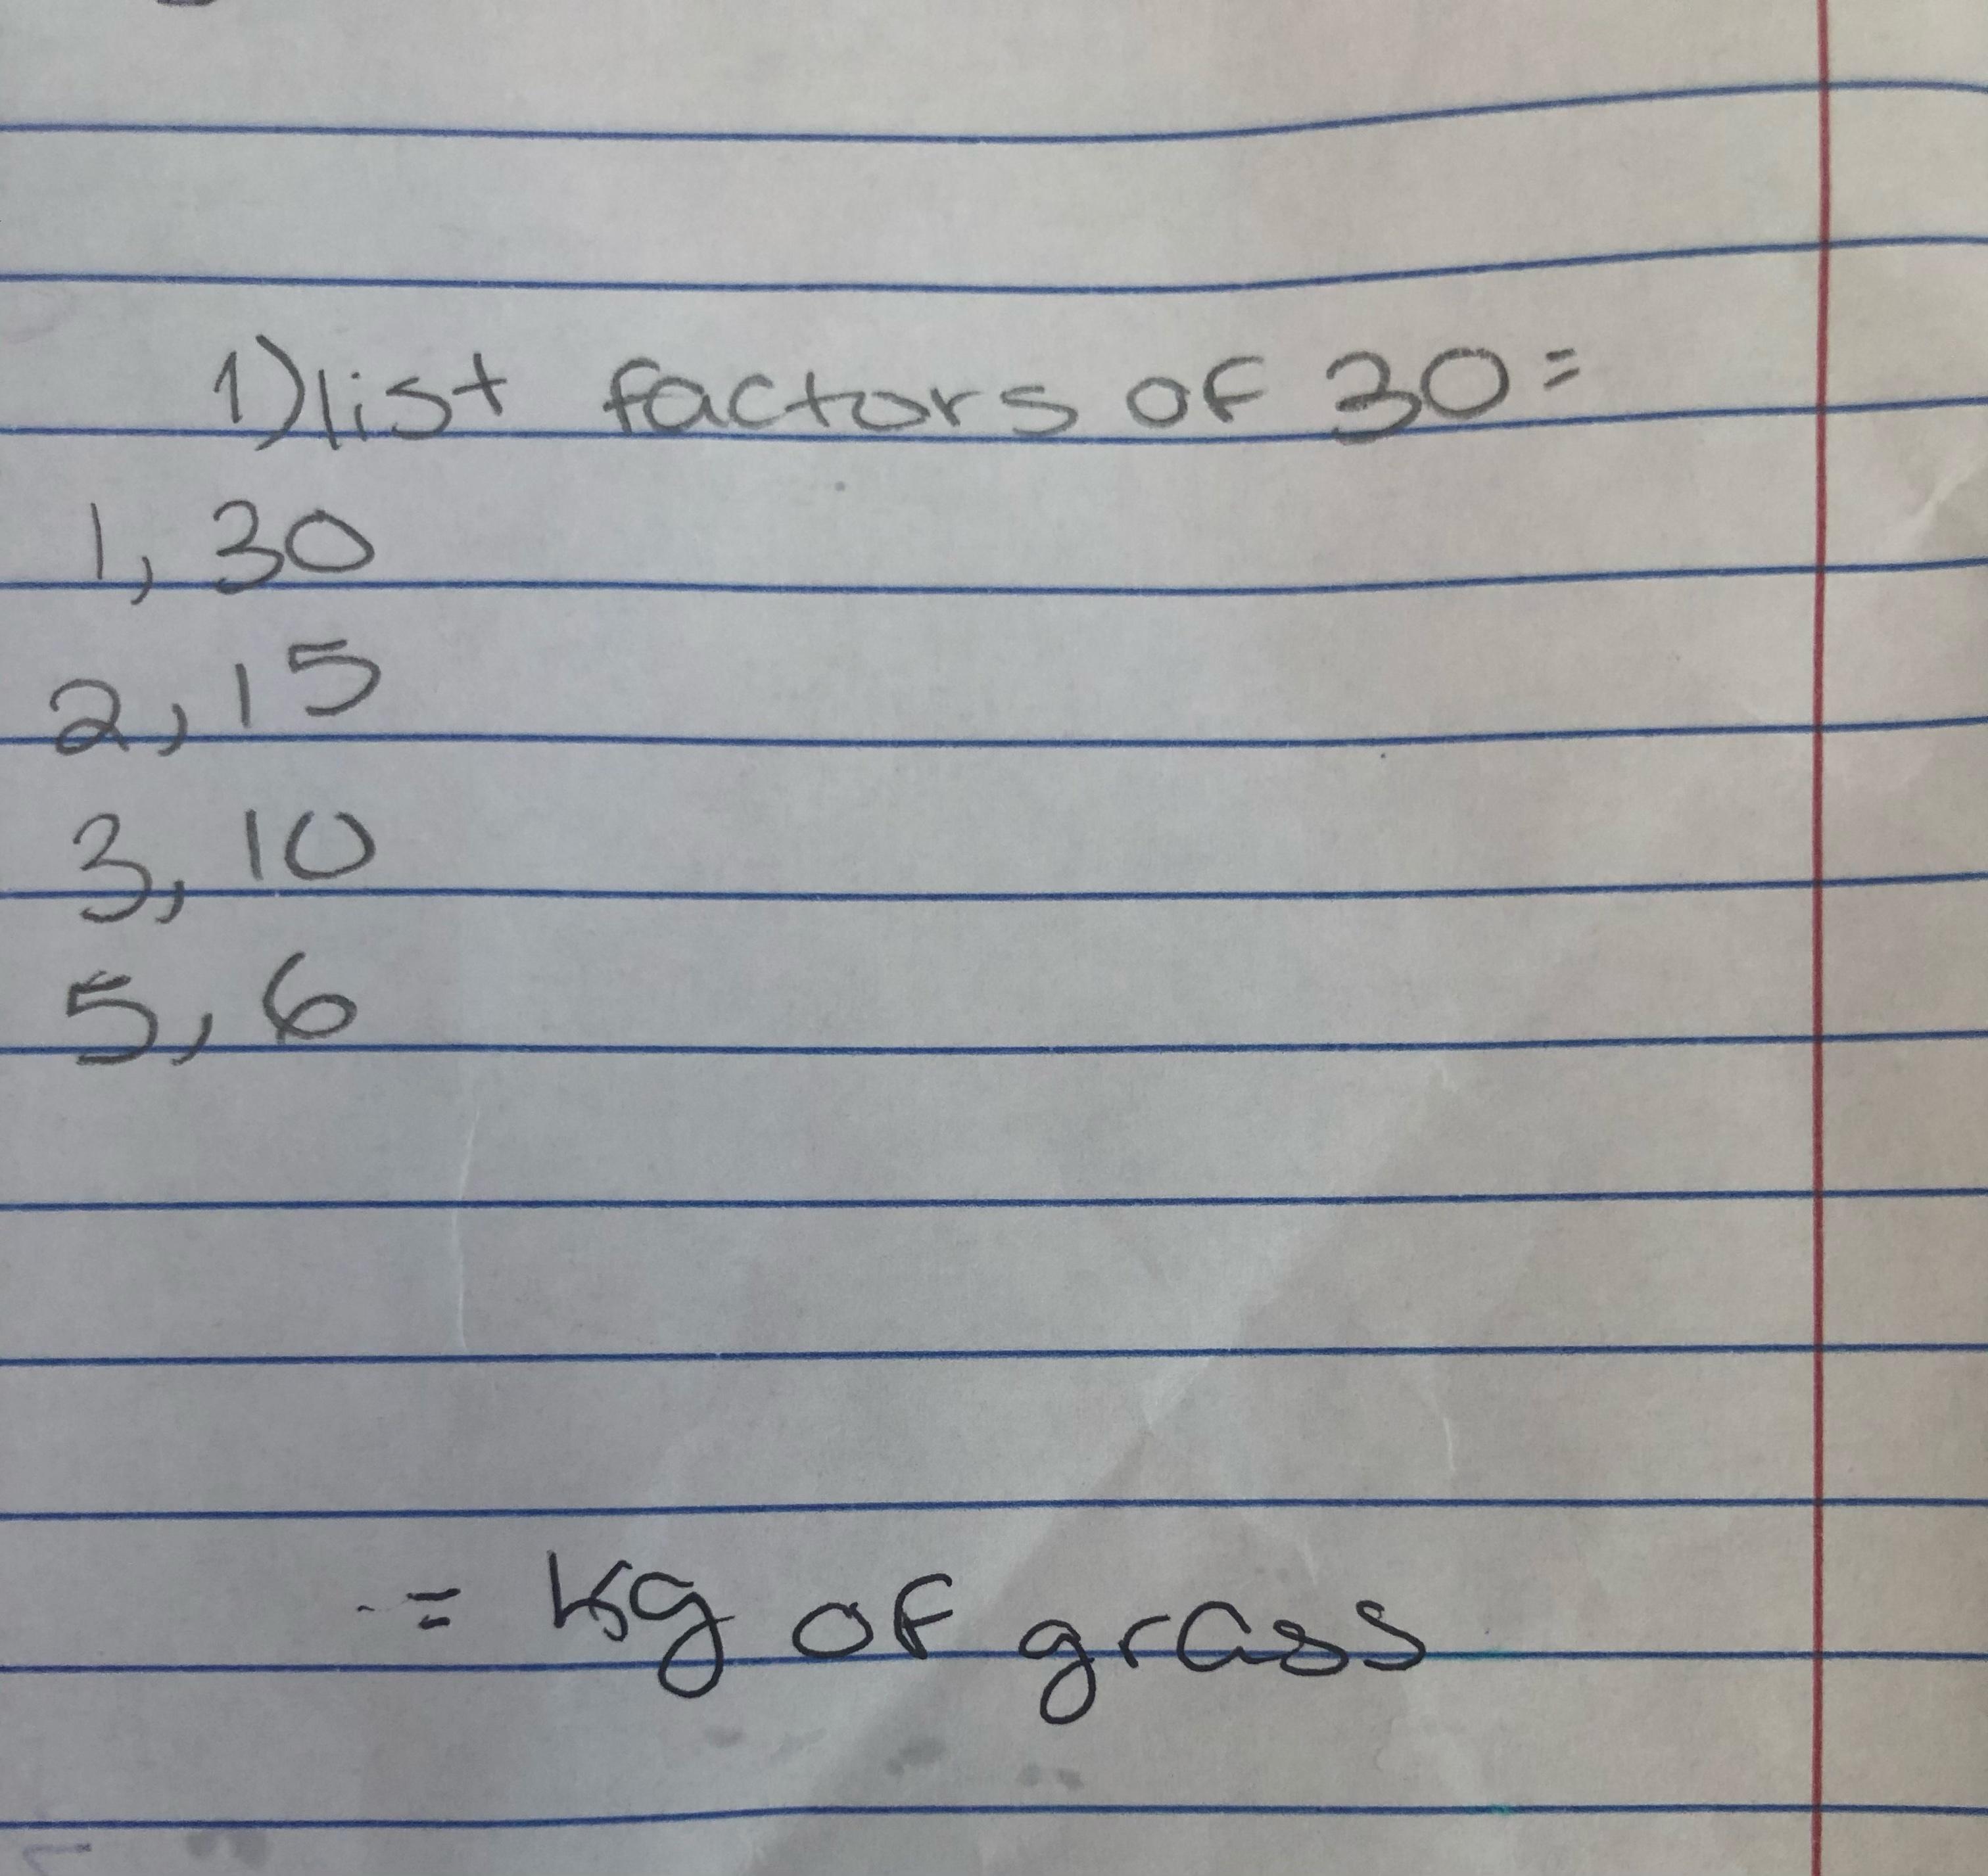 1) list factors of 30=
1, 30
2, 15
3, 10
5, 6
-= kg of grass